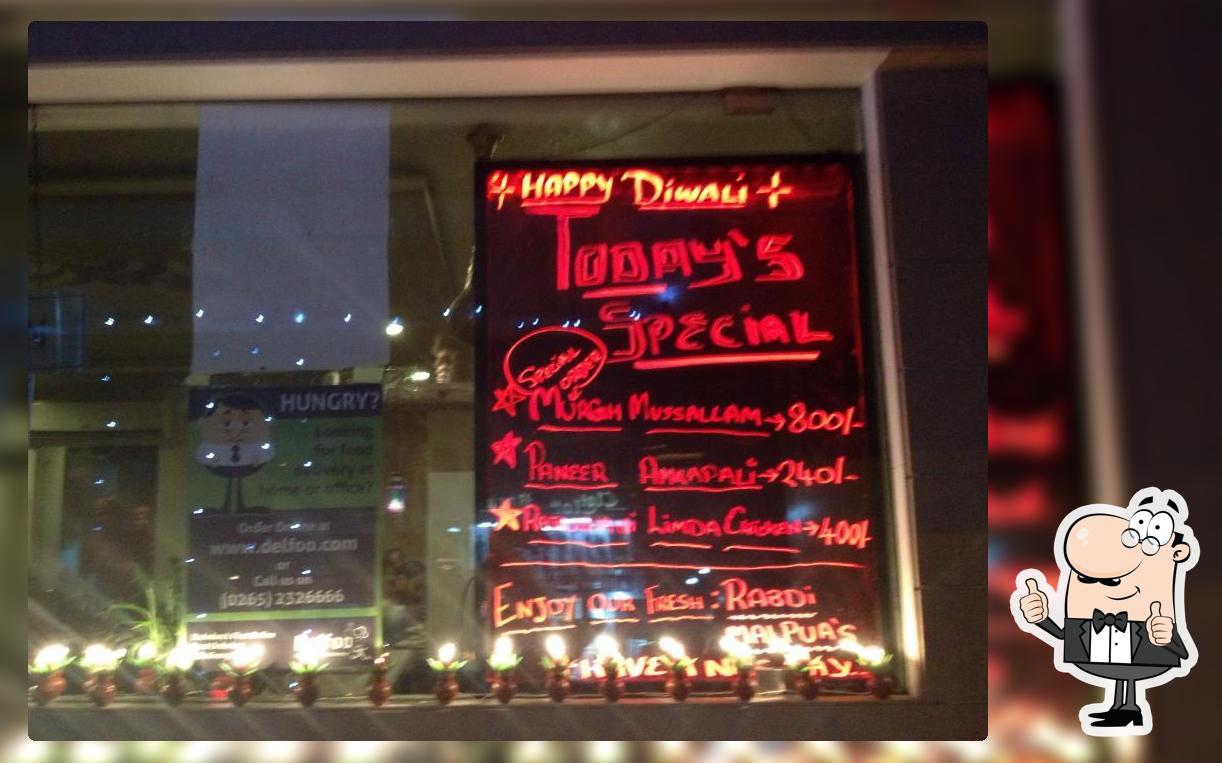 HAPPY DIWALI
TODAY'S
SPECIAL
SPECIAL
ORDER
MURGH MUSSALLAM → 800/-
PANEER AMRAPALI → 240/-
LIMDA CHICKEN → 400/-
ENJOY OUR FRESH : RABDI
MALPUA'S
HAVE A NICE DAY..
HUNGRY?
Looking
for food
delivery at
home or office?
Order Online at
www.delfoo.com
or
Call us on
(0265) 2326666